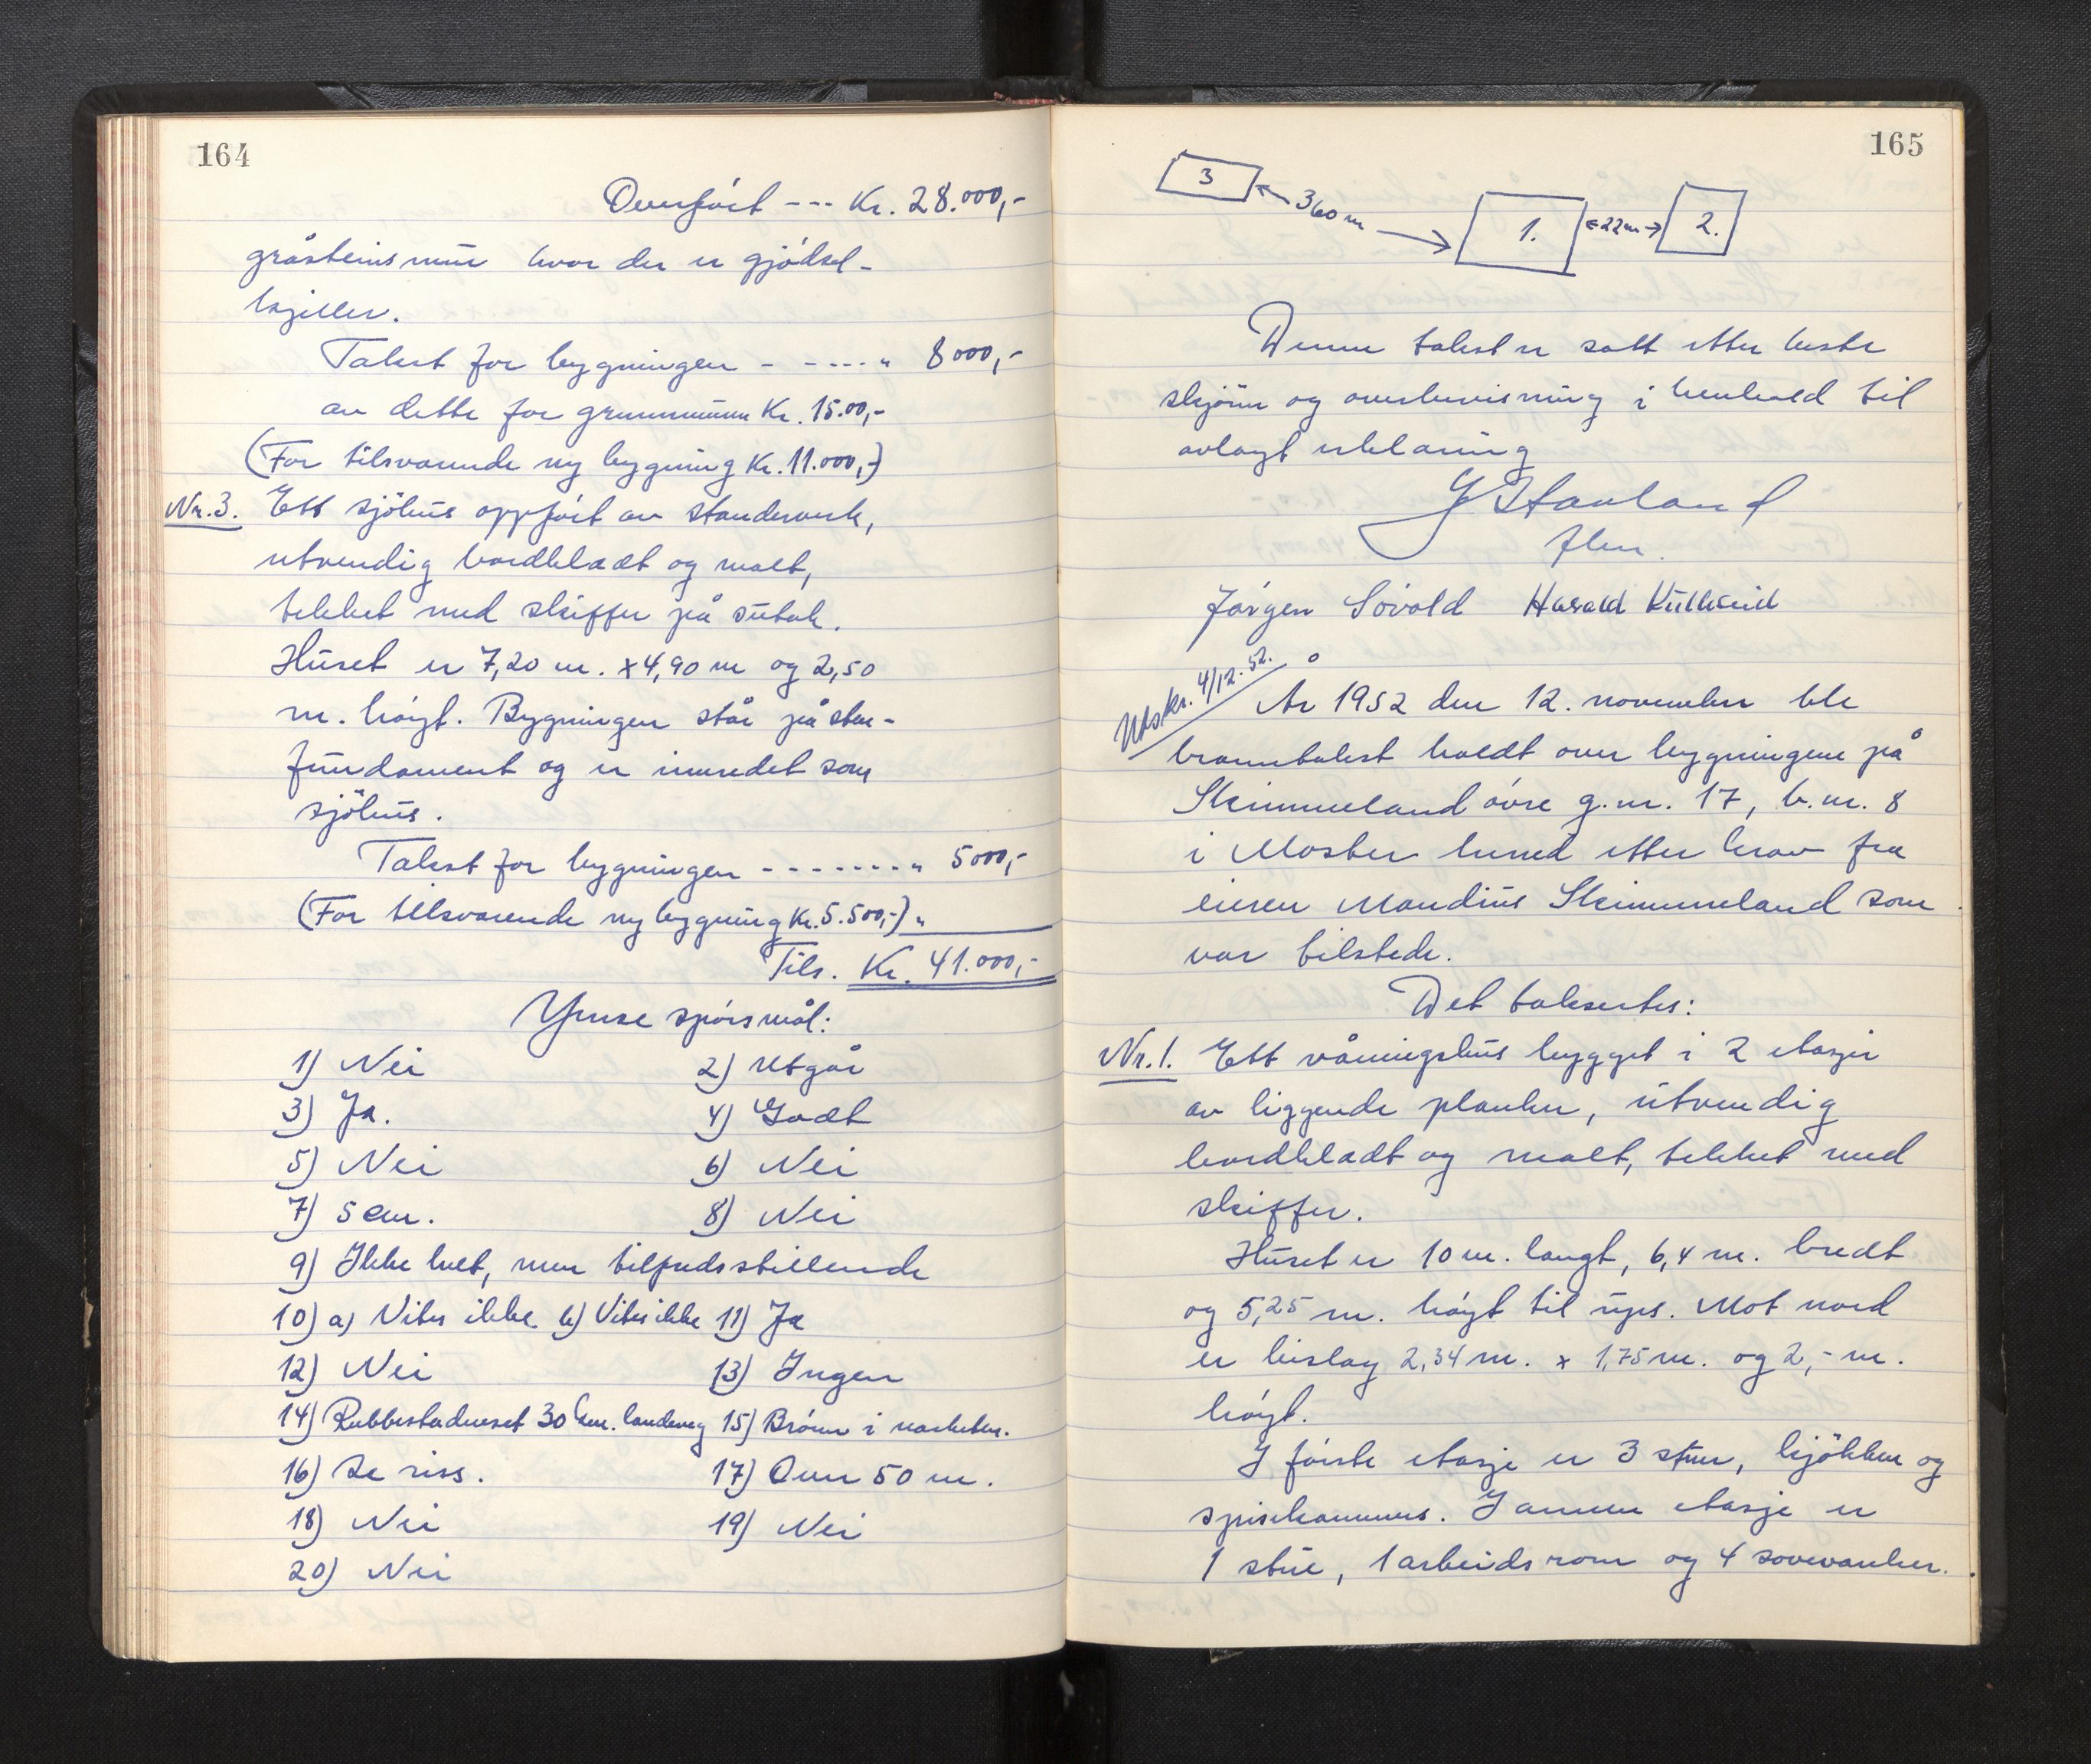 164
Overført --- Kr. 28.000,-
gråsteinsmur hvor der er gjødsel-
kjeller.
Takst for bygningen - - ---- " 8000,-
av dette for grunnmuren Kr. 1500,-
(For tilsvarende ny bygning Kr. 11.000,-)
Nr. 3. Ett sjøhus oppført av standerverk,
utvendig bordkledt og malt,
tekket med skiffer på sutak.
Huset er 7,20 m. x 4,90 m og 2,50
m. høgt. Bygningen står på sten-
fundament og er innredet som
sjøhus.
Takst for bygningen - - - - - - - " 5000,-
(For tilsvarende ny bygning Kr. 5.500,-) "
Tils. Kr. 41.000,-
Ymse spørsmål:
1) Nei 2) Utgår
3) Ja. 4) Godt
5) Nei 6) Nei
7) 5 cm. 8) Nei
9) Ikke helt, men tilfredsstillende
10) a) Vites ikke b) Vites ikke 11) Ja
12) Nei 13) Ingen
14) Rubbestadneset 30 km. landeveg 15) Brønn i nærheten.
16) Se riss. 17) Over 50 m.
18) Nei 19) Nei
20) Nei
165
3 360 m 1. 22m 2.
Denne takst er satt etter beste
skjønn og overbevisning i henhold til
avlagt erklæring
J Stavland
flm.
Jørgen Søvold Harald Kulleseid
Utskr. 4/12. 52.
År 1952 den 12. november ble
branntakst holdt over bygningene på
Skimmeland øvre g.nr. 17, b.nr. 8
i Moster herred etter krav fra
eieren Mandius Skimmeland som
var tilstede.
Det taksertes:
Nr. 1. Ett våningshus bygget i 2 etasjer
av liggende planker, utvendig
bordkledt og malt, tekket med
skiffer.
Huset er 10 m. langt, 6,4 m. bredt
og 5,25 m. høgt til ups. Mot nord
er bislag 2,34 m. x 1,75 m. og 2,- m.
høgt.
I første etasje er 3 stuer, kjøkken og
spisekammers. I annen etasje er
1 stue, 1 arbeidsrom og 4 soveværelser.